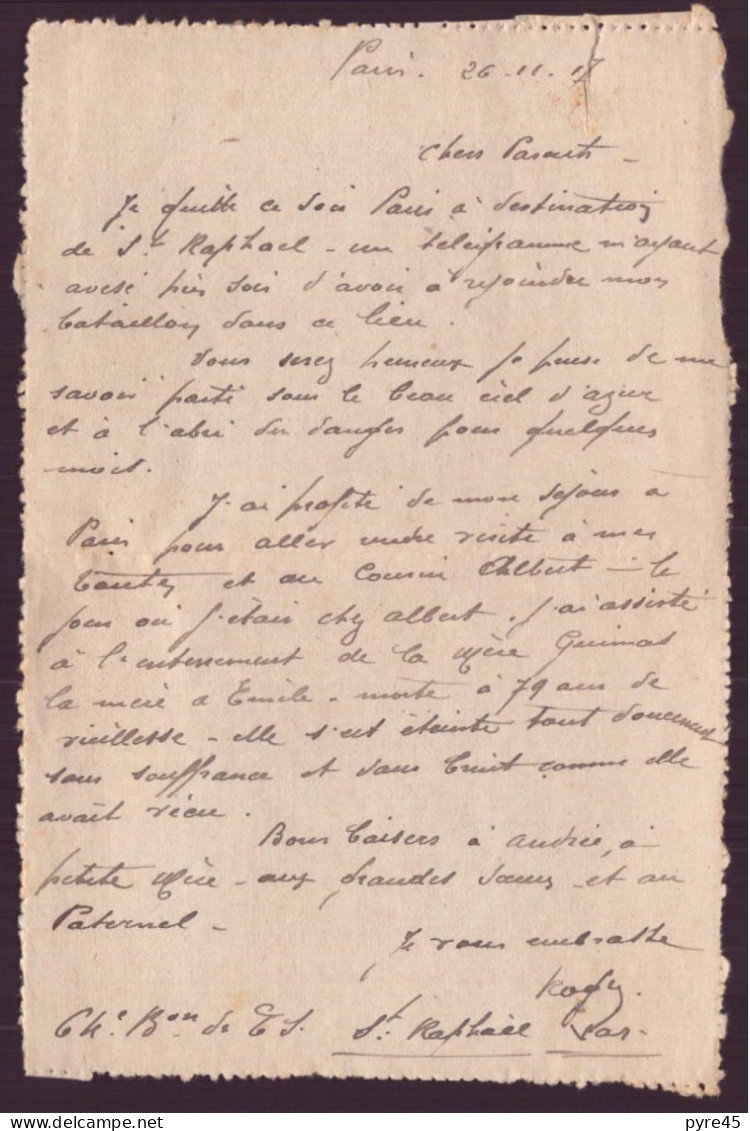 Paris. 26-11-17
Chers Parents -
Je quitte ce soir Paris à destination
de St Raphael - un télégramme m'ayant
avisé hier soir d'avoir à rejoindre mon
bataillon dans ce lieu.
Vous serez heureux je pense de me
savoir parti sous le beau ciel d'azur
et à l'abri du danger pour quelques
mois.
J'ai profité de mon séjour à
Paris pour aller rendre visite à mes
tantes et au Cousin Albert - le
jour où j'étais chez Albert, j'ai assisté
à l'enterrement de la Mère Guimas
la mère à Emile - morte à 79 ans de
vieillesse - elle s'est éteinte tout doucement
sans souffrance et sans bruit comme elle
avait vécu.
Bons baisers à Andrée, à
petite Mère - aux grandes sœurs et au
Paternel -
Je vous embrasse
St Raphaël Var-
pyre45